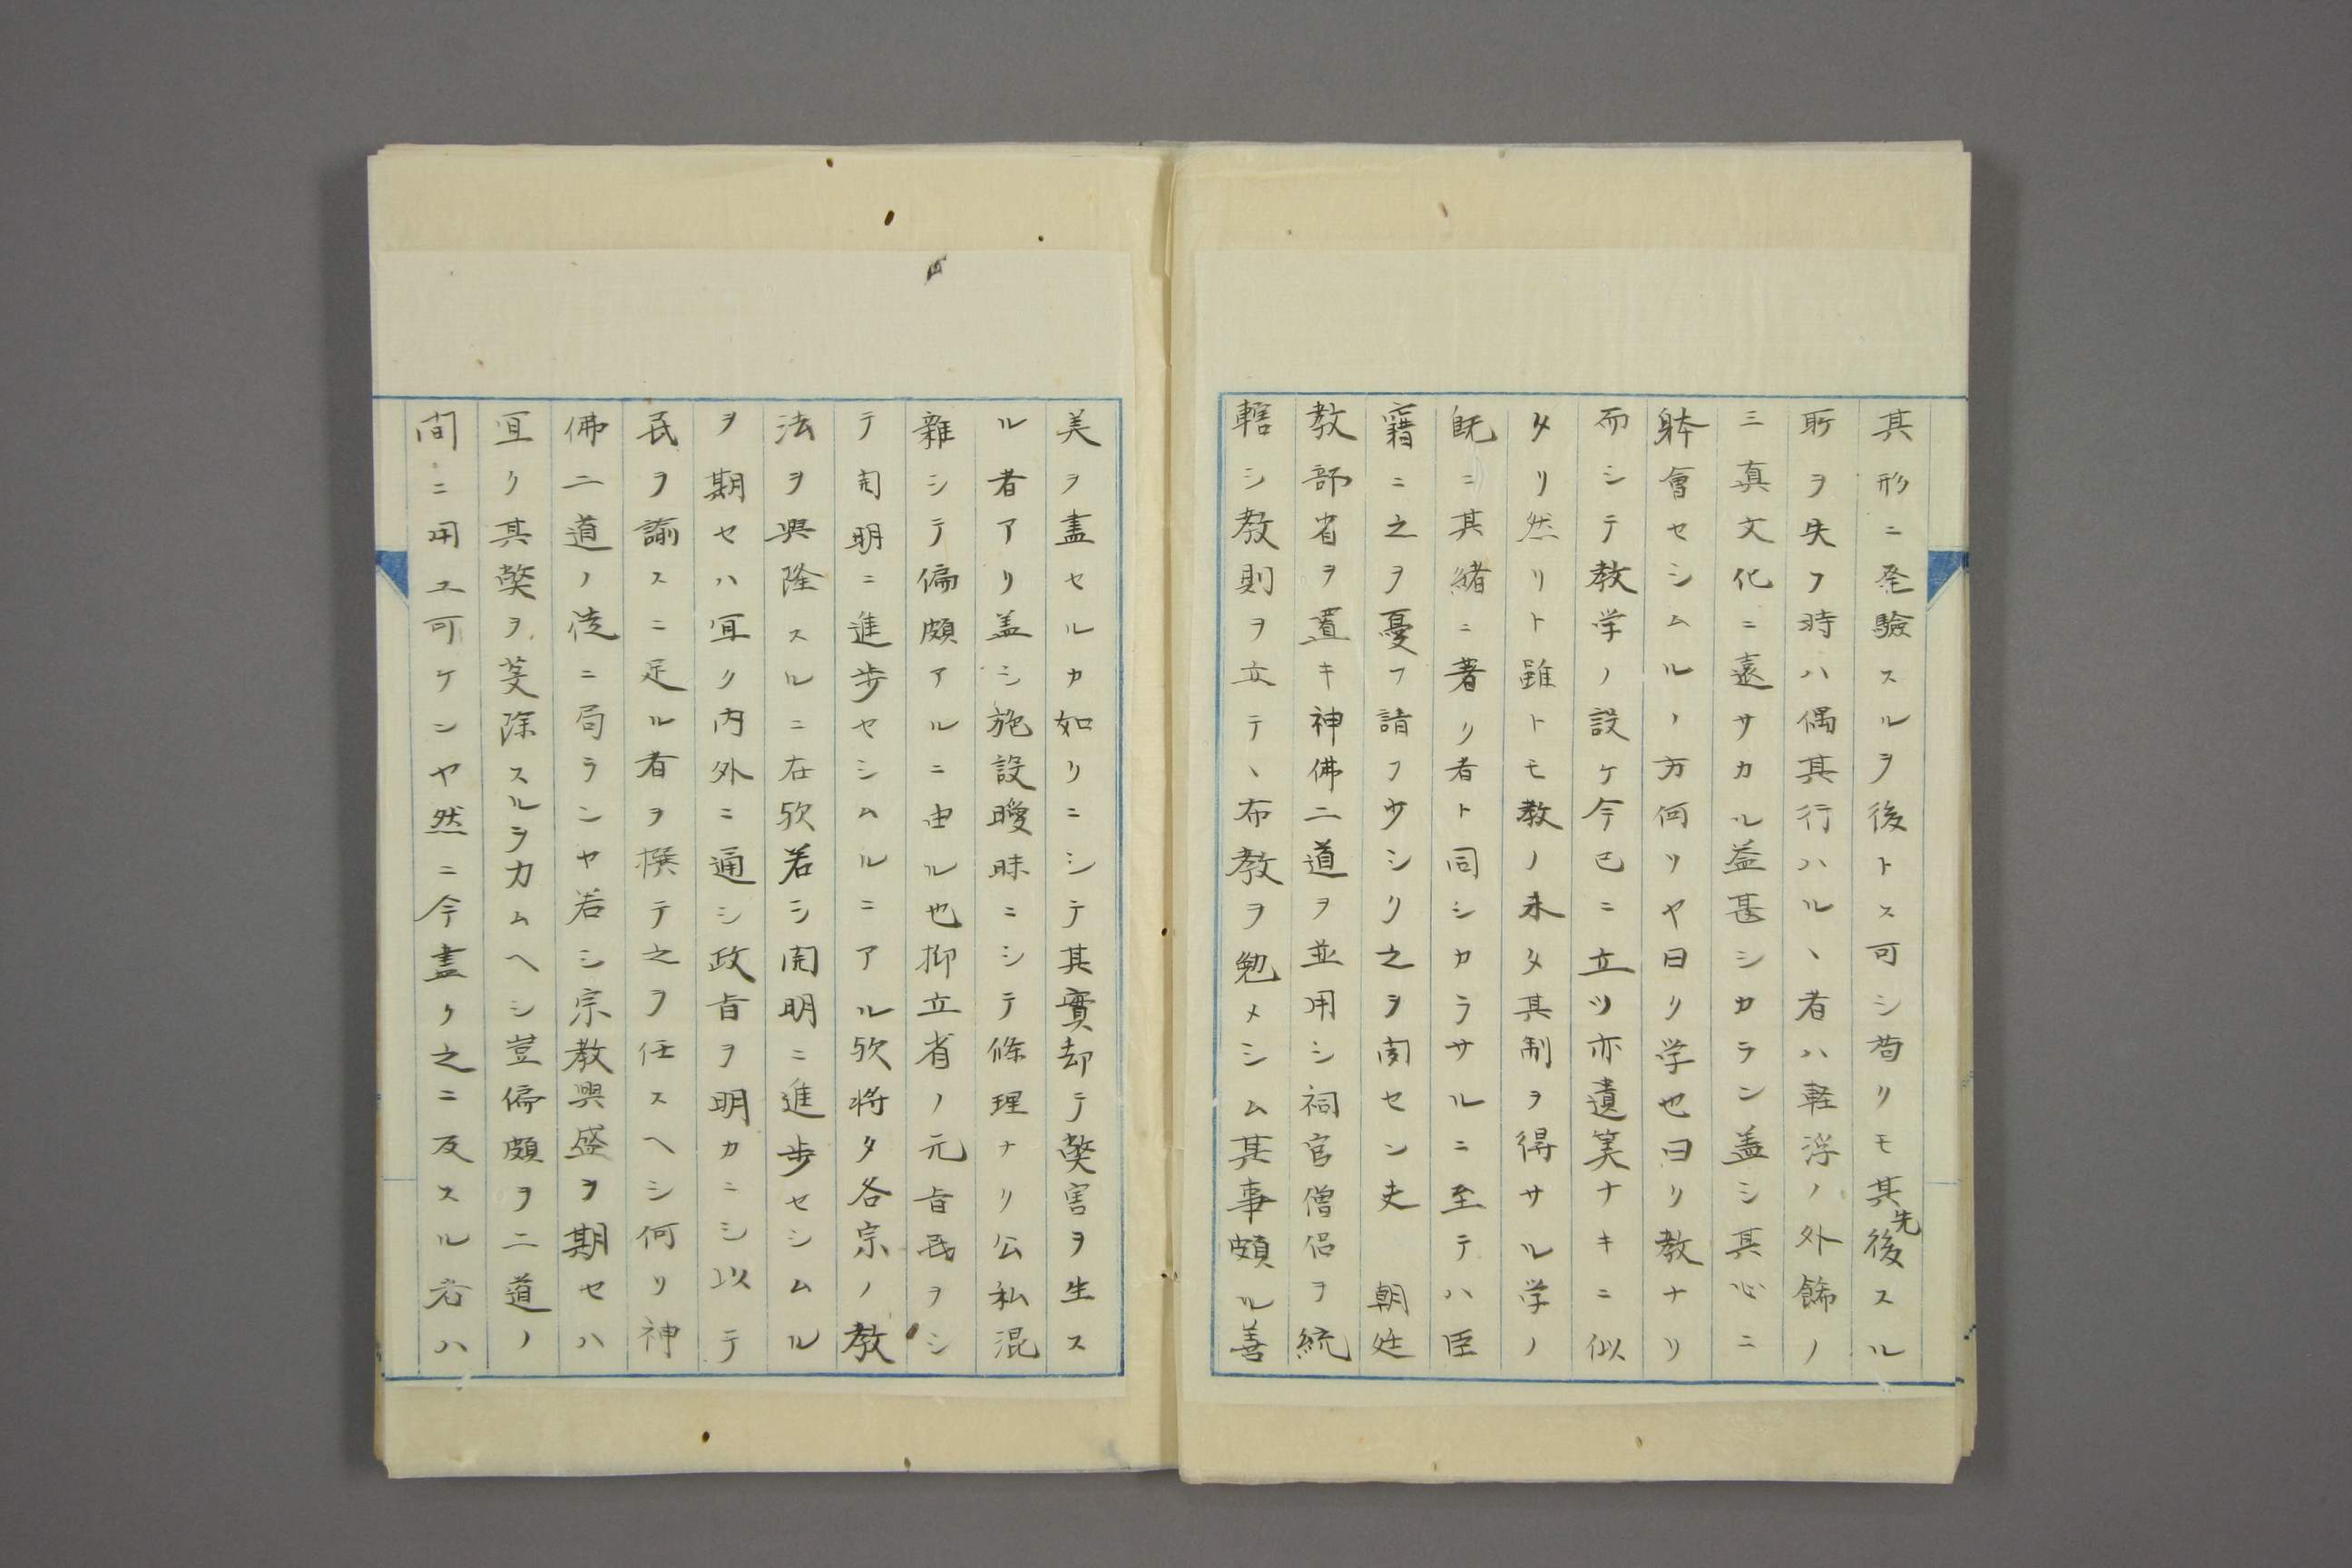 其形ニ発驗スルヲ後トス可シ苟クモ其先後スル
所ヲ失フ時ハ偶其行ハルヽ者ハ軽浮ノ外飾ノ
三真文化ニ遠サカル益甚シカラン盖シ其心ニ
躰會セシムルノ方何ソヤ曰ク学也曰ク教ナリ
而シテ教学ノ設ケ今已ニ立ツ亦遺筭ナキニ似
タリ然リト雖トモ教ノ未タ其制ヲ得サル学ノ
既ニ其緒ニ著ク者ト同シカラサルニ至テハ臣
竊ニ之ヲ憂フ請フ少シク之ヲ陳セン夫　朝廷
教部省ヲ置キ神佛二道ヲ並用シ祠官僧侶ヲ統
轄シ教則ヲ立テヽ布教ヲ勉メシム其事頗ル善
美ヲ盡セルカ如クニシテ其實却テ獘害ヲ生ス
ル者アリ盖シ施設曖昧ニシテ條理ナク公私混
雜シテ偏頗アルニ由ル也抑立省ノ元旨民ヲシ
テ開明ニ進歩セシムルニアル欤将タ各宗ノ教
法ヲ興隆スルニ在欤若シ開明ニ進歩セシムル
ヲ期セハ冝ク内外ニ通シ政旨ヲ明カニシ以テ
民ヲ諭スニ足ル者ヲ撰テ之ヲ任スヘシ何ソ神
佛二道ノ徒ニ局ランヤ若シ宗教興盛ヲ期セハ
冝ク其獘ヲ芟除スルヲカムヘシ豈偏頗ヲ二道ノ
間ニ用ユ可ケンヤ然ニ今盡ク之ニ反スル者ハ